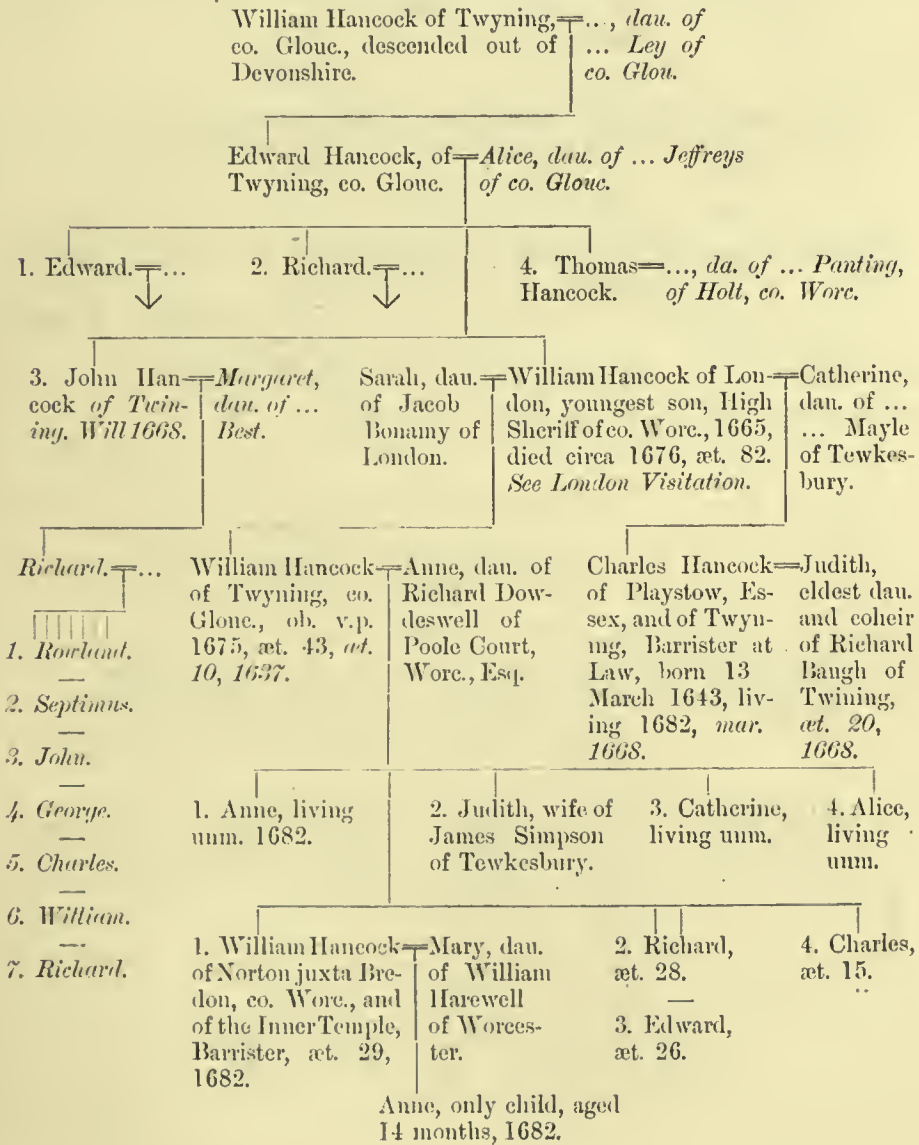 William Hancock of Twyning,
co. Glouc., descended out of
Devonshire.
..., dau. of
... Ley of
co. Glou.
Edward Hancock, of
Twyning, co. Glouc.
Alice, dau. of ... Jeffreys
of co. Glouc.
1. Edward. ...
2. Richard. ...
4. Thomas
Hancock.
..., da. of ... Panting,
of Holt, co. Worc.
3. John Han-
cock of Twin-
ing. Will 1668.
Margaret,
dau. of ...
Best.
Sarah, dau.
of Jacob
Bonamy of
London.
William Hancock of Lon-
don, youngest son, High
Sheriff of co. Worc., 1665,
died circa 1676, æt. 82.
See London Visitation.
Catherine,
dau. of ...
... Mayle
of Tewkes-
bury.
Richard. ...
1. Rowland.
—
2. Septimus.
—
3. John.
—
4. George.
—
5. Charles.
—
6. William.
—
7. Richard.
William Hancock
of Twyning, co.
Glouc., ob. v.p.
1675, æt. 43, æt.
10, 1637.
Anne, dau. of
Richard Dow-
deswell of
Poole Court,
Worc., Esq.
Charles Hancock
of Playstow, Es-
sex, and of Twyn-
ing, Barrister at
Law, born 13
March 1643, liv-
ing 1682, mar.
1668.
Judith,
eldest dau.
and coheir
of Richard
Baugh of
Twining,
æt. 20,
1668.
1. Anne, living
unm. 1682.
2. Judith, wife of
James Simpson
of Tewkesbury.
3. Catherine,
living unm.
4. Alice,
living
unm.
1. William Hancock
of Norton juxta Bre-
don, co. Worc., and
of the Inner Temple,
Barrister, æt. 29,
1682.
Mary, dau.
of William
Harewell
of Worces-
ter.
2. Richard,
æt. 28.
—
3. Edward,
æt. 26.
4. Charles,
æt. 15.
Anne, only child, aged
14 months, 1682.